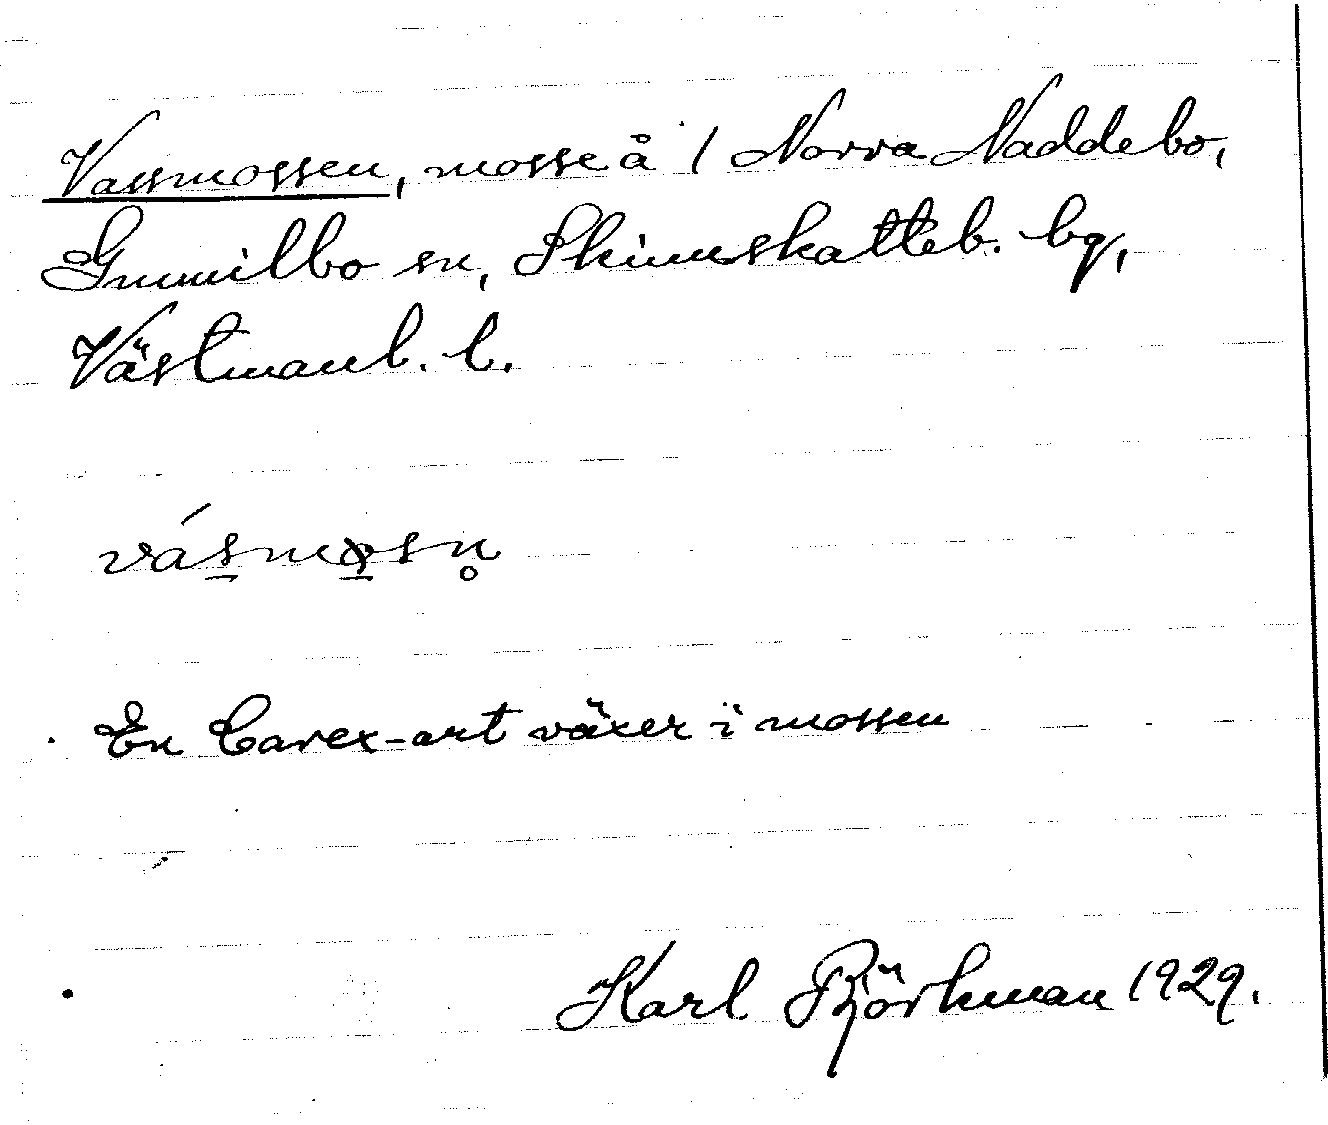 Vassmossen, mosse å 1 Norra Naddebo,
Gunnilbo sn, Skinnskatteb. bg,
Västmanl. l.
vásmosn̥
En Carex-art växer i mossen
Karl Björkman 1929.